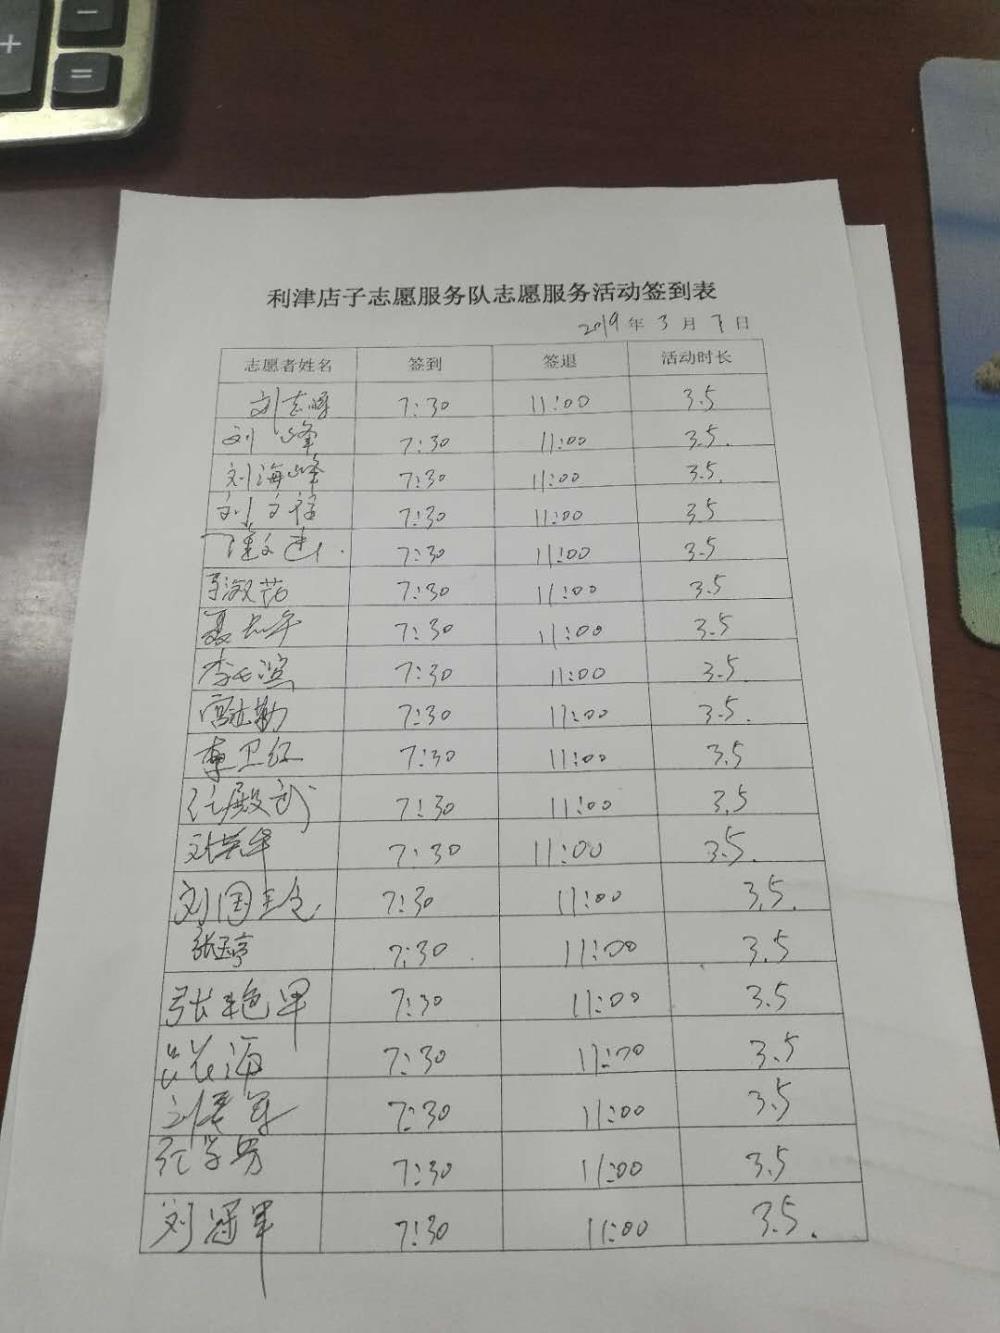 +
−
=
利津店子志愿服务队志愿服务活动签到表
2019年3月7日
志愿者姓名 签到 签退 活动时长
刘志峰 7:30 11:00 3.5
刘峰 7:30 11:00 3.5.
刘海峰 7:30 11:00 3.5.
刘文 7:30 11:00 3.5
7:30 11:00 3.5
淑芬 7:30 11:00 3.5
聂 7:30 11:00 3.5
李 滨 7:30 11:00 3.5.
勤 7:30 11:00 3.5.
李卫红 7:30 11:00 3.5
殿武 7:30 11:00 3.5
刘英华 7:30 11:00 3.5.
刘国 7:30 11:00 3.5.
张玉亭 7:30 11:00 3.5
张艳军 7:30 11:00 3.5
海 7:30 11:00 3.5
刘 军 7:30 11:00 3.5
学 7:30 11:00 3.5
刘冠军 7:30 11:00 3.5.